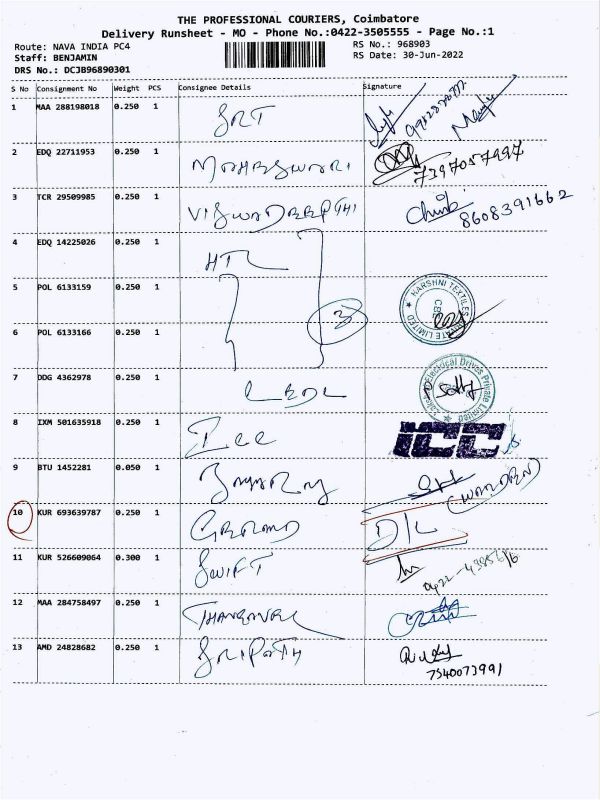 THE PROFESSIONAL COURIERS, Coimbatore
Delivery Runsheet - MO - Phone No.:0422-3505555 - Page No.:1
Route: NAVA INDIA PC4
RS No.: 968903
Staff: BENJAMIN
RS Date: 30-Jun-2022
DRS No.: DCJB96890301
S No Consignment No Weight PCS Consignee Details Signature
1 MAA 288198018 0.250 1 SRT
2 EDQ 22711953 0.250 1 7397057997
3 TCR 29509985 0.250 1 8608391662
4 EDQ 14225026 0.250 1 HTL
5 POL 6133159 0.250 1 HARSHNI TEXTILES LIMITED
3
6 POL 6133166 0.250 1
7 DDG 4362978 0.250 1 Electrical Drives Private Limited
8 IXM 501635918 0.250 1 ICC ICC
9 BTU 1452281 0.050 1 (WARDEN)
10 KUR 693639787 0.250 1 D/L
11 KUR 526609064 0.300 1 SWIFT
12 MAA 284758497 0.250 1
13 AMD 24828682 0.250 1 SRIPATHI
7540073991